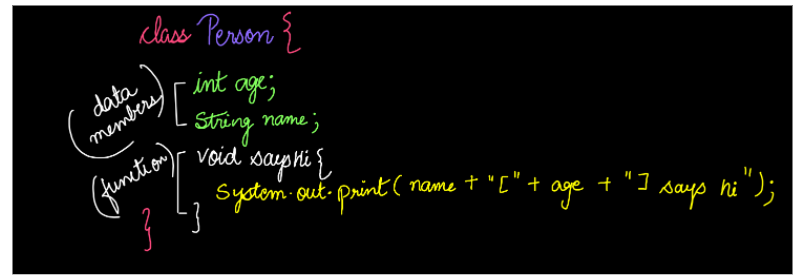 class Person {
(data members) int age;
String name;
(function) void sayshi {
System.out.print( name + "[" + age + "] says hi");
}
}